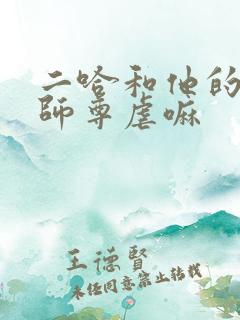 二哈和他的
師尊虐嘛
王德賢
未经同意禁止转载